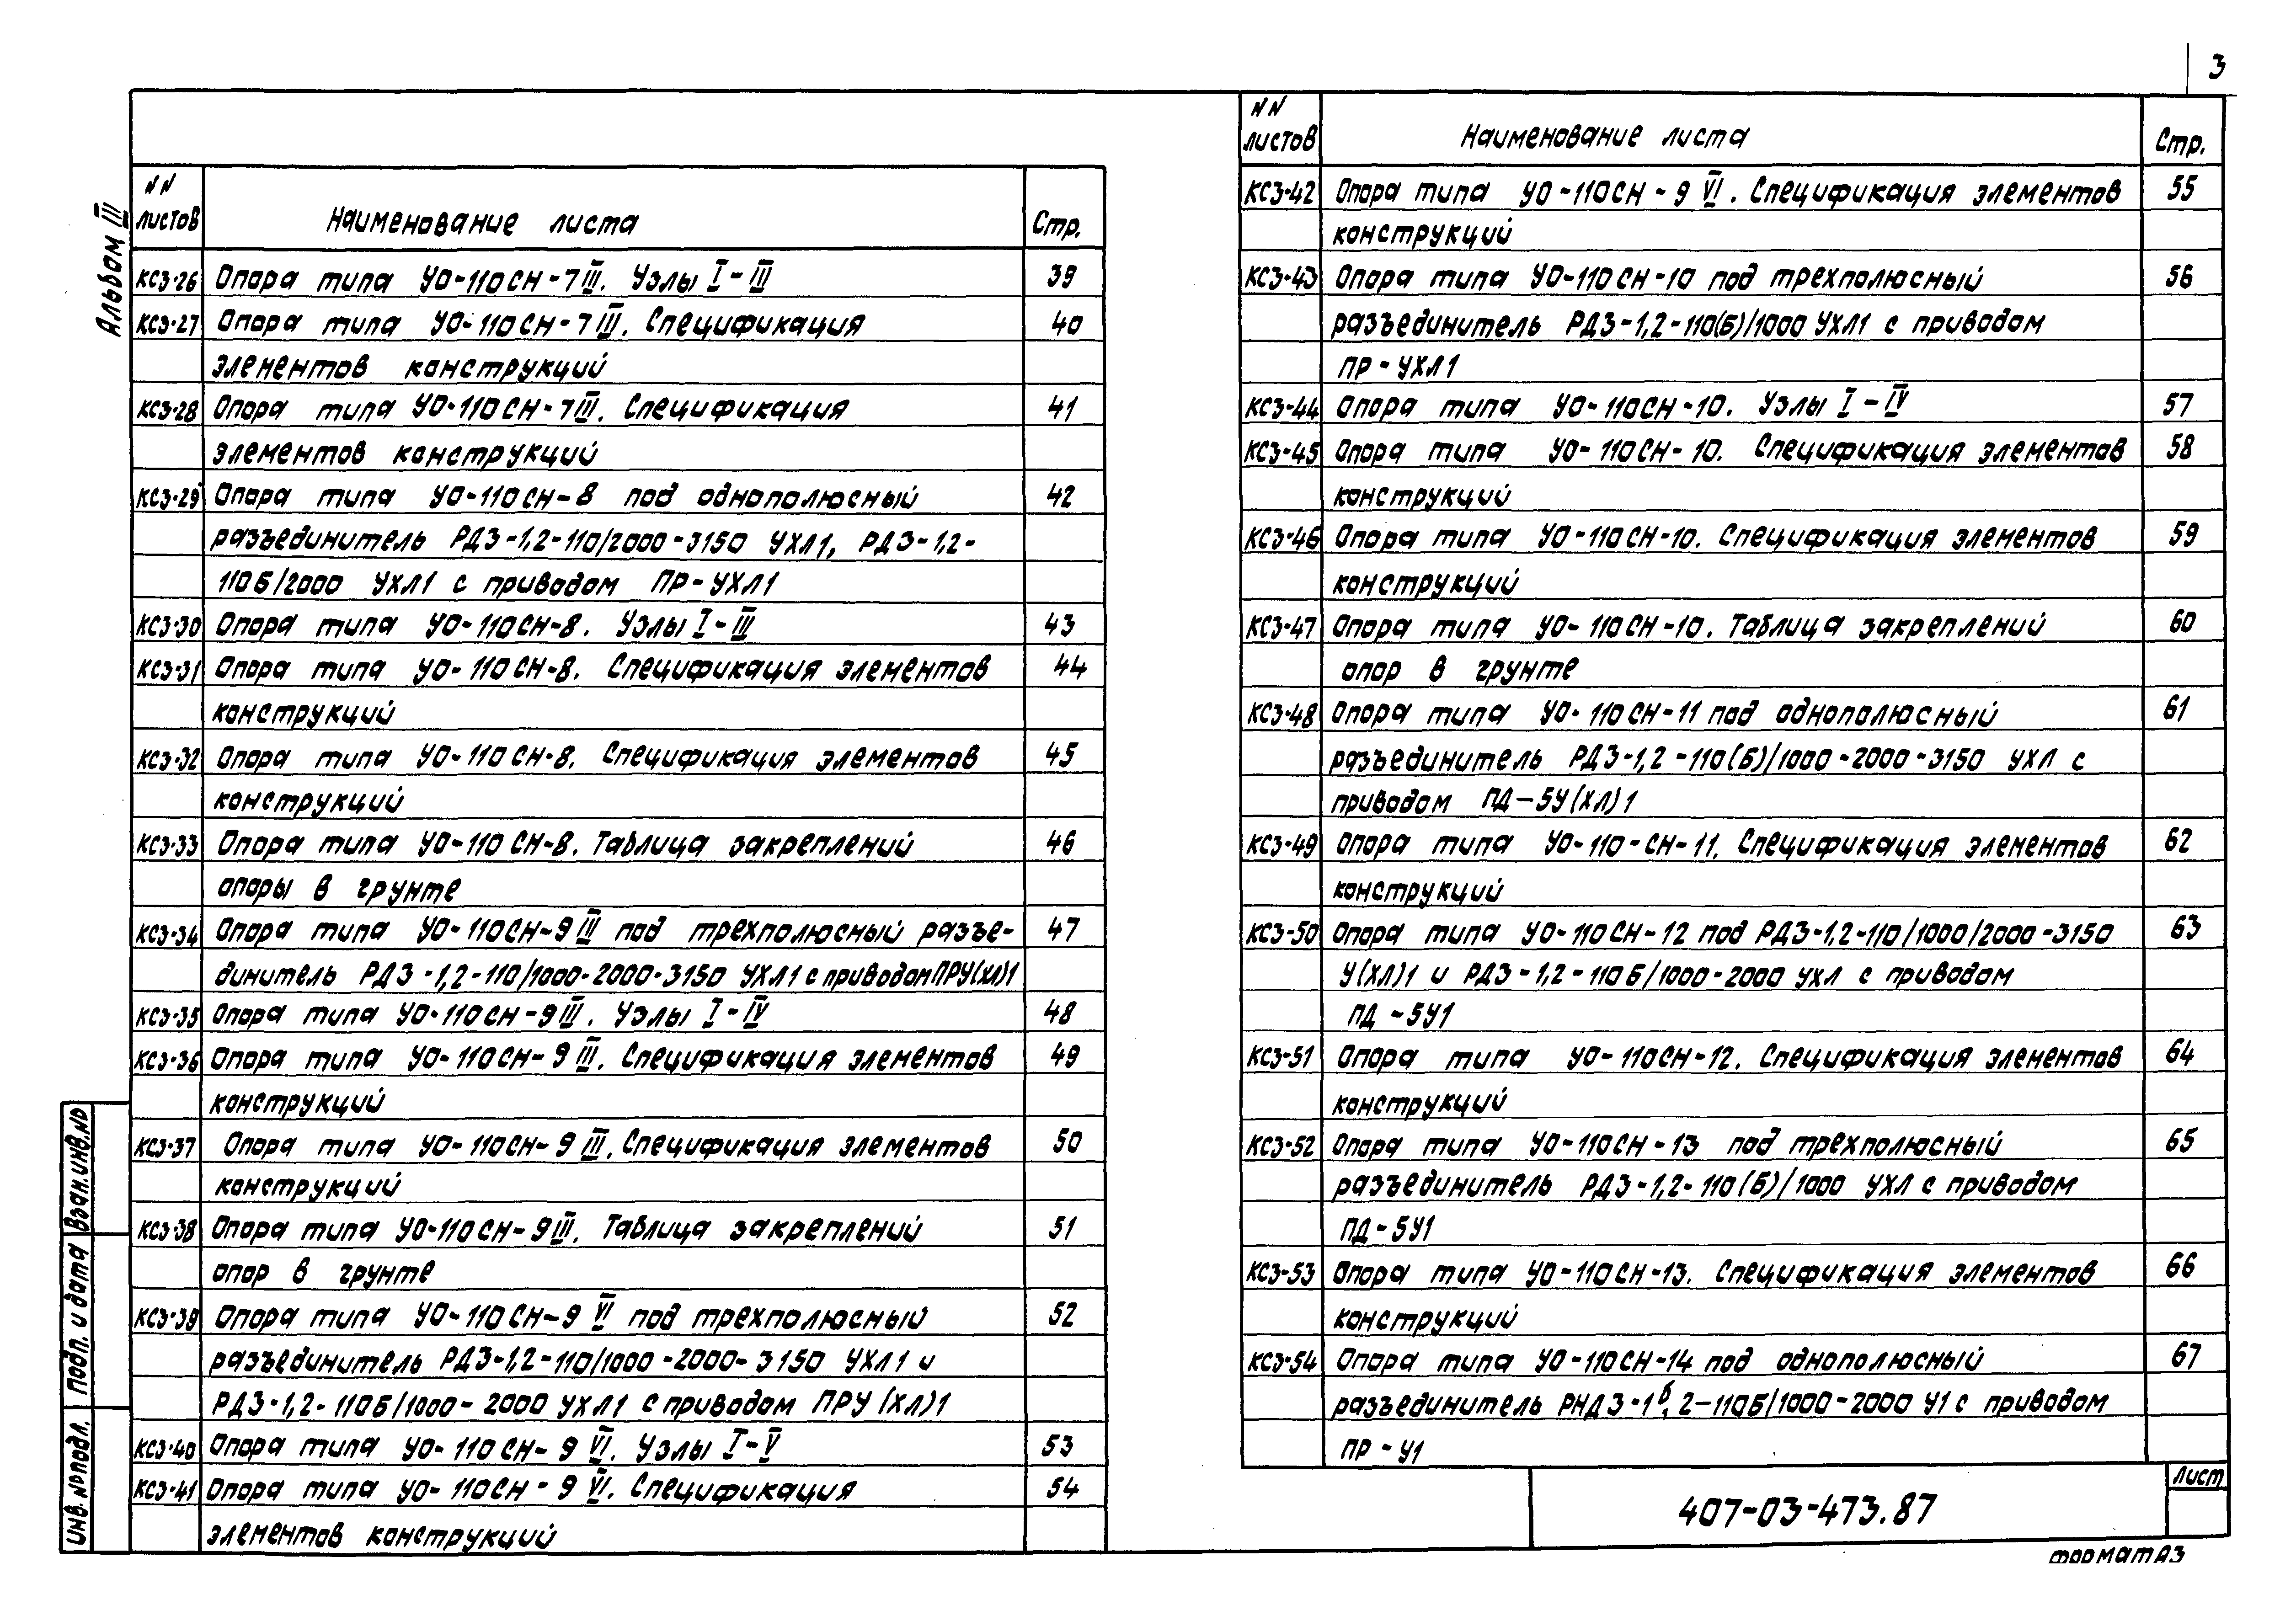 3
Альбом III
NN листов Наименование листа Стр.
КС3-26 Опора типа УО-110СН-7III. Узлы I-III 39
КС3-27 Опора типа УО-110СН-7III. Спецификация 40
элементов конструкций
КС3-28 Опора типа УО-110СН-7III. Спецификация 41
элементов конструкций
КС3-29 Опора типа УО-110СН-8 под однополюсный 42
разъединитель РДЗ-1,2-110/2000-3150 УХЛ1, РДЗ-1,2-
110Б/2000 УХЛ1 с приводом ПР-УХЛ1
КС3-30 Опора типа УО-110СН-8. Узлы I-III 43
КС3-31 Опора типа УО-110СН-8. Спецификация элементов 44
конструкций
КС3-32 Опора типа УО-110СН-8. Спецификация элементов 45
конструкций
КС3-33 Опора типа УО-110СН-8. Таблица закреплений 46
опоры в грунте
КС3-34 Опора типа УО-110СН-9III под трехполюсный разъе- 47
динитель РДЗ-1,2-110/1000-2000-3150 УХЛ1 с приводом ПРУ(ХЛ)1
КС3-35 Опора типа УО-110СН-9III. Узлы I-IV 48
КС3-36 Опора типа УО-110СН-9III. Спецификация элементов 49
конструкций
КС3-37 Опора типа УО-110СН-9III. Спецификация элементов 50
конструкций
КС3-38 Опора типа УО-110СН-9III. Таблица закреплений 51
опор в грунте
КС3-39 Опора типа УО-110СН-9VI под трехполюсный 52
разъединитель РДЗ-1,2-110/1000-2000-3150 УХЛ1 и
РДЗ-1,2-110Б/1000-2000 УХЛ1 с приводом ПРУ(ХЛ)1
КС3-40 Опора типа УО-110СН-9VI. Узлы I-V 53
КС3-41 Опора типа УО-110СН-9VI. Спецификация 54
элементов конструкций
NN листов Наименование листа Стр.
КС3-42 Опора типа УО-110СН-9VI. Спецификация элементов 55
конструкций
КС3-43 Опора типа УО-110СН-10 под трехполюсный 56
разъединитель РДЗ-1,2-110(Б)/1000 УХЛ1 с приводом
ПР-УХЛ1
КС3-44 Опора типа УО-110СН-10. Узлы I-IV 57
КС3-45 Опора типа УО-110СН-10. Спецификация элементов 58
конструкций
КС3-46 Опора типа УО-110СН-10. Спецификация элементов 59
конструкций
КС3-47 Опора типа УО-110СН-10. Таблица закреплений 60
опор в грунте
КС3-48 Опора типа УО-110СН-11 под однополюсный 61
разъединитель РДЗ-1,2-110(Б)/1000-2000-3150 УХЛ с
приводом ПД-5У(ХЛ)1
КС3-49 Опора типа УО-110-СН-11. Спецификация элементов 62
конструкций
КС3-50 Опора типа УО-110СН-12 под РДЗ-1,2-110/1000/2000-3150 63
У(ХЛ)1 и РДЗ-1,2-110Б/1000-2000 УХЛ с приводом
ПД-5У1
КС3-51 Опора типа УО-110СН-12. Спецификация элементов 64
конструкций
КС3-52 Опора типа УО-110СН-13 под трехполюсный 65
разъединитель РДЗ-1,2-110(Б)/1000 УХЛ с приводом
ПД-5У1
КС3-53 Опора типа УО-110СН-13. Спецификация элементов 66
конструкций
КС3-54 Опора типа УО-110СН-14 под однополюсный 67
разъединитель РНДЗ-1б, 2-110Б/1000-2000 У1 с приводом
ПР-У1
Взан.инв.№
Подп. и дата
Инв. № подл.
407-03-473.87
Лист
Формат А3